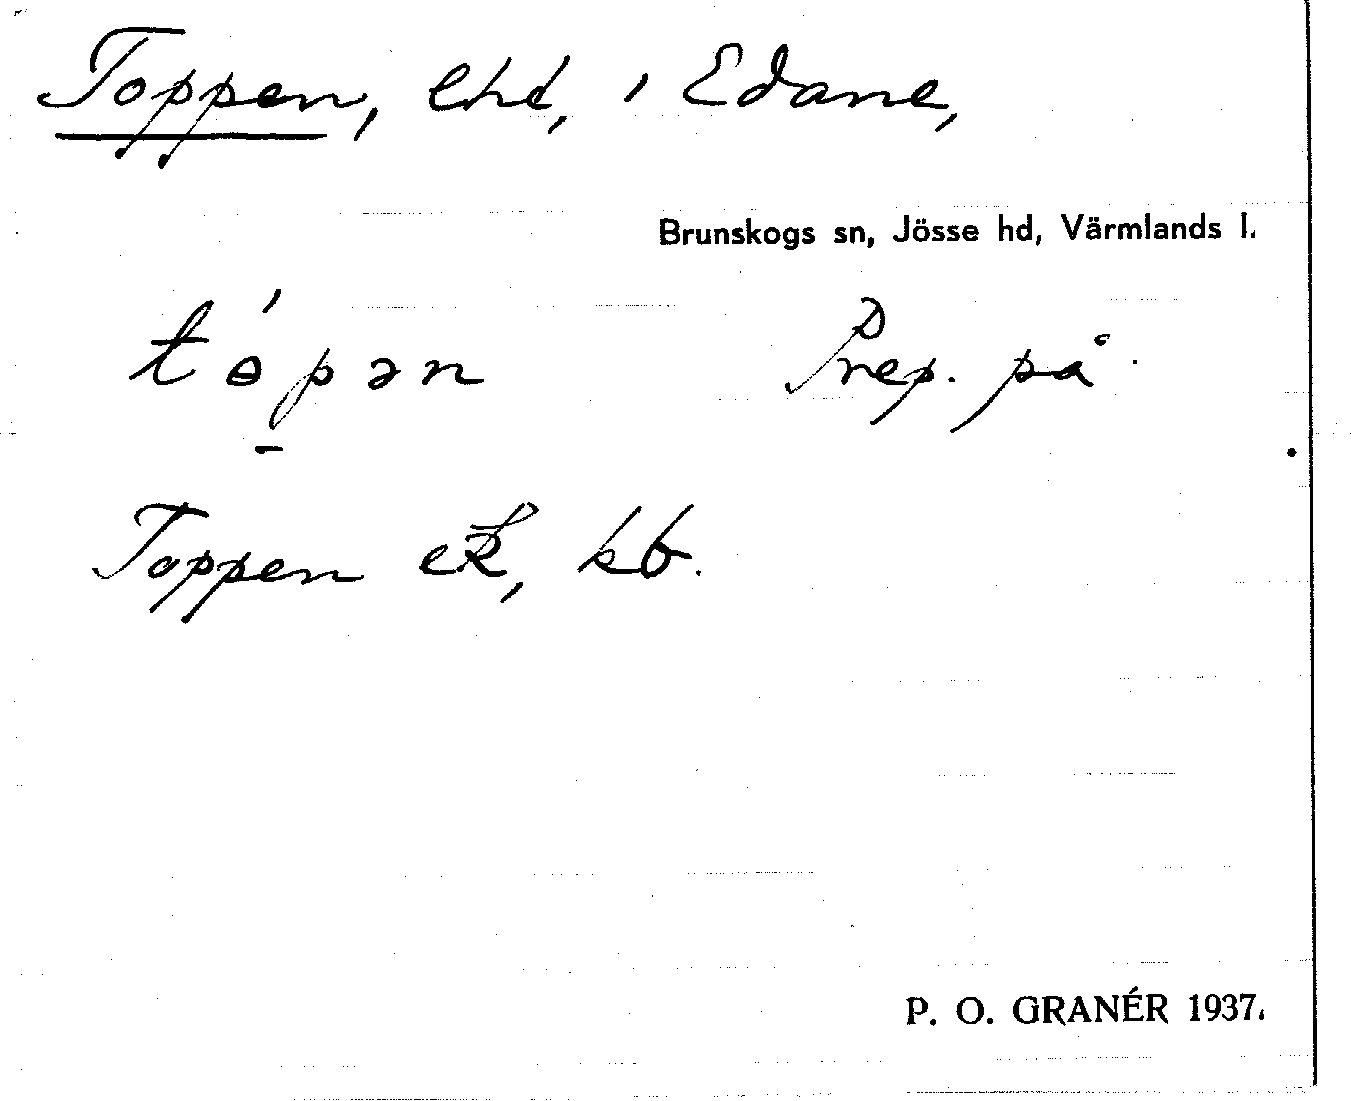 Toppen, lht, i Edane,
Brunskogs sn, Jösse hd, Värmlands l.
tɵ́pən Prep. på.
Toppen ek, kb.
P. O. GRANÉR 1937.